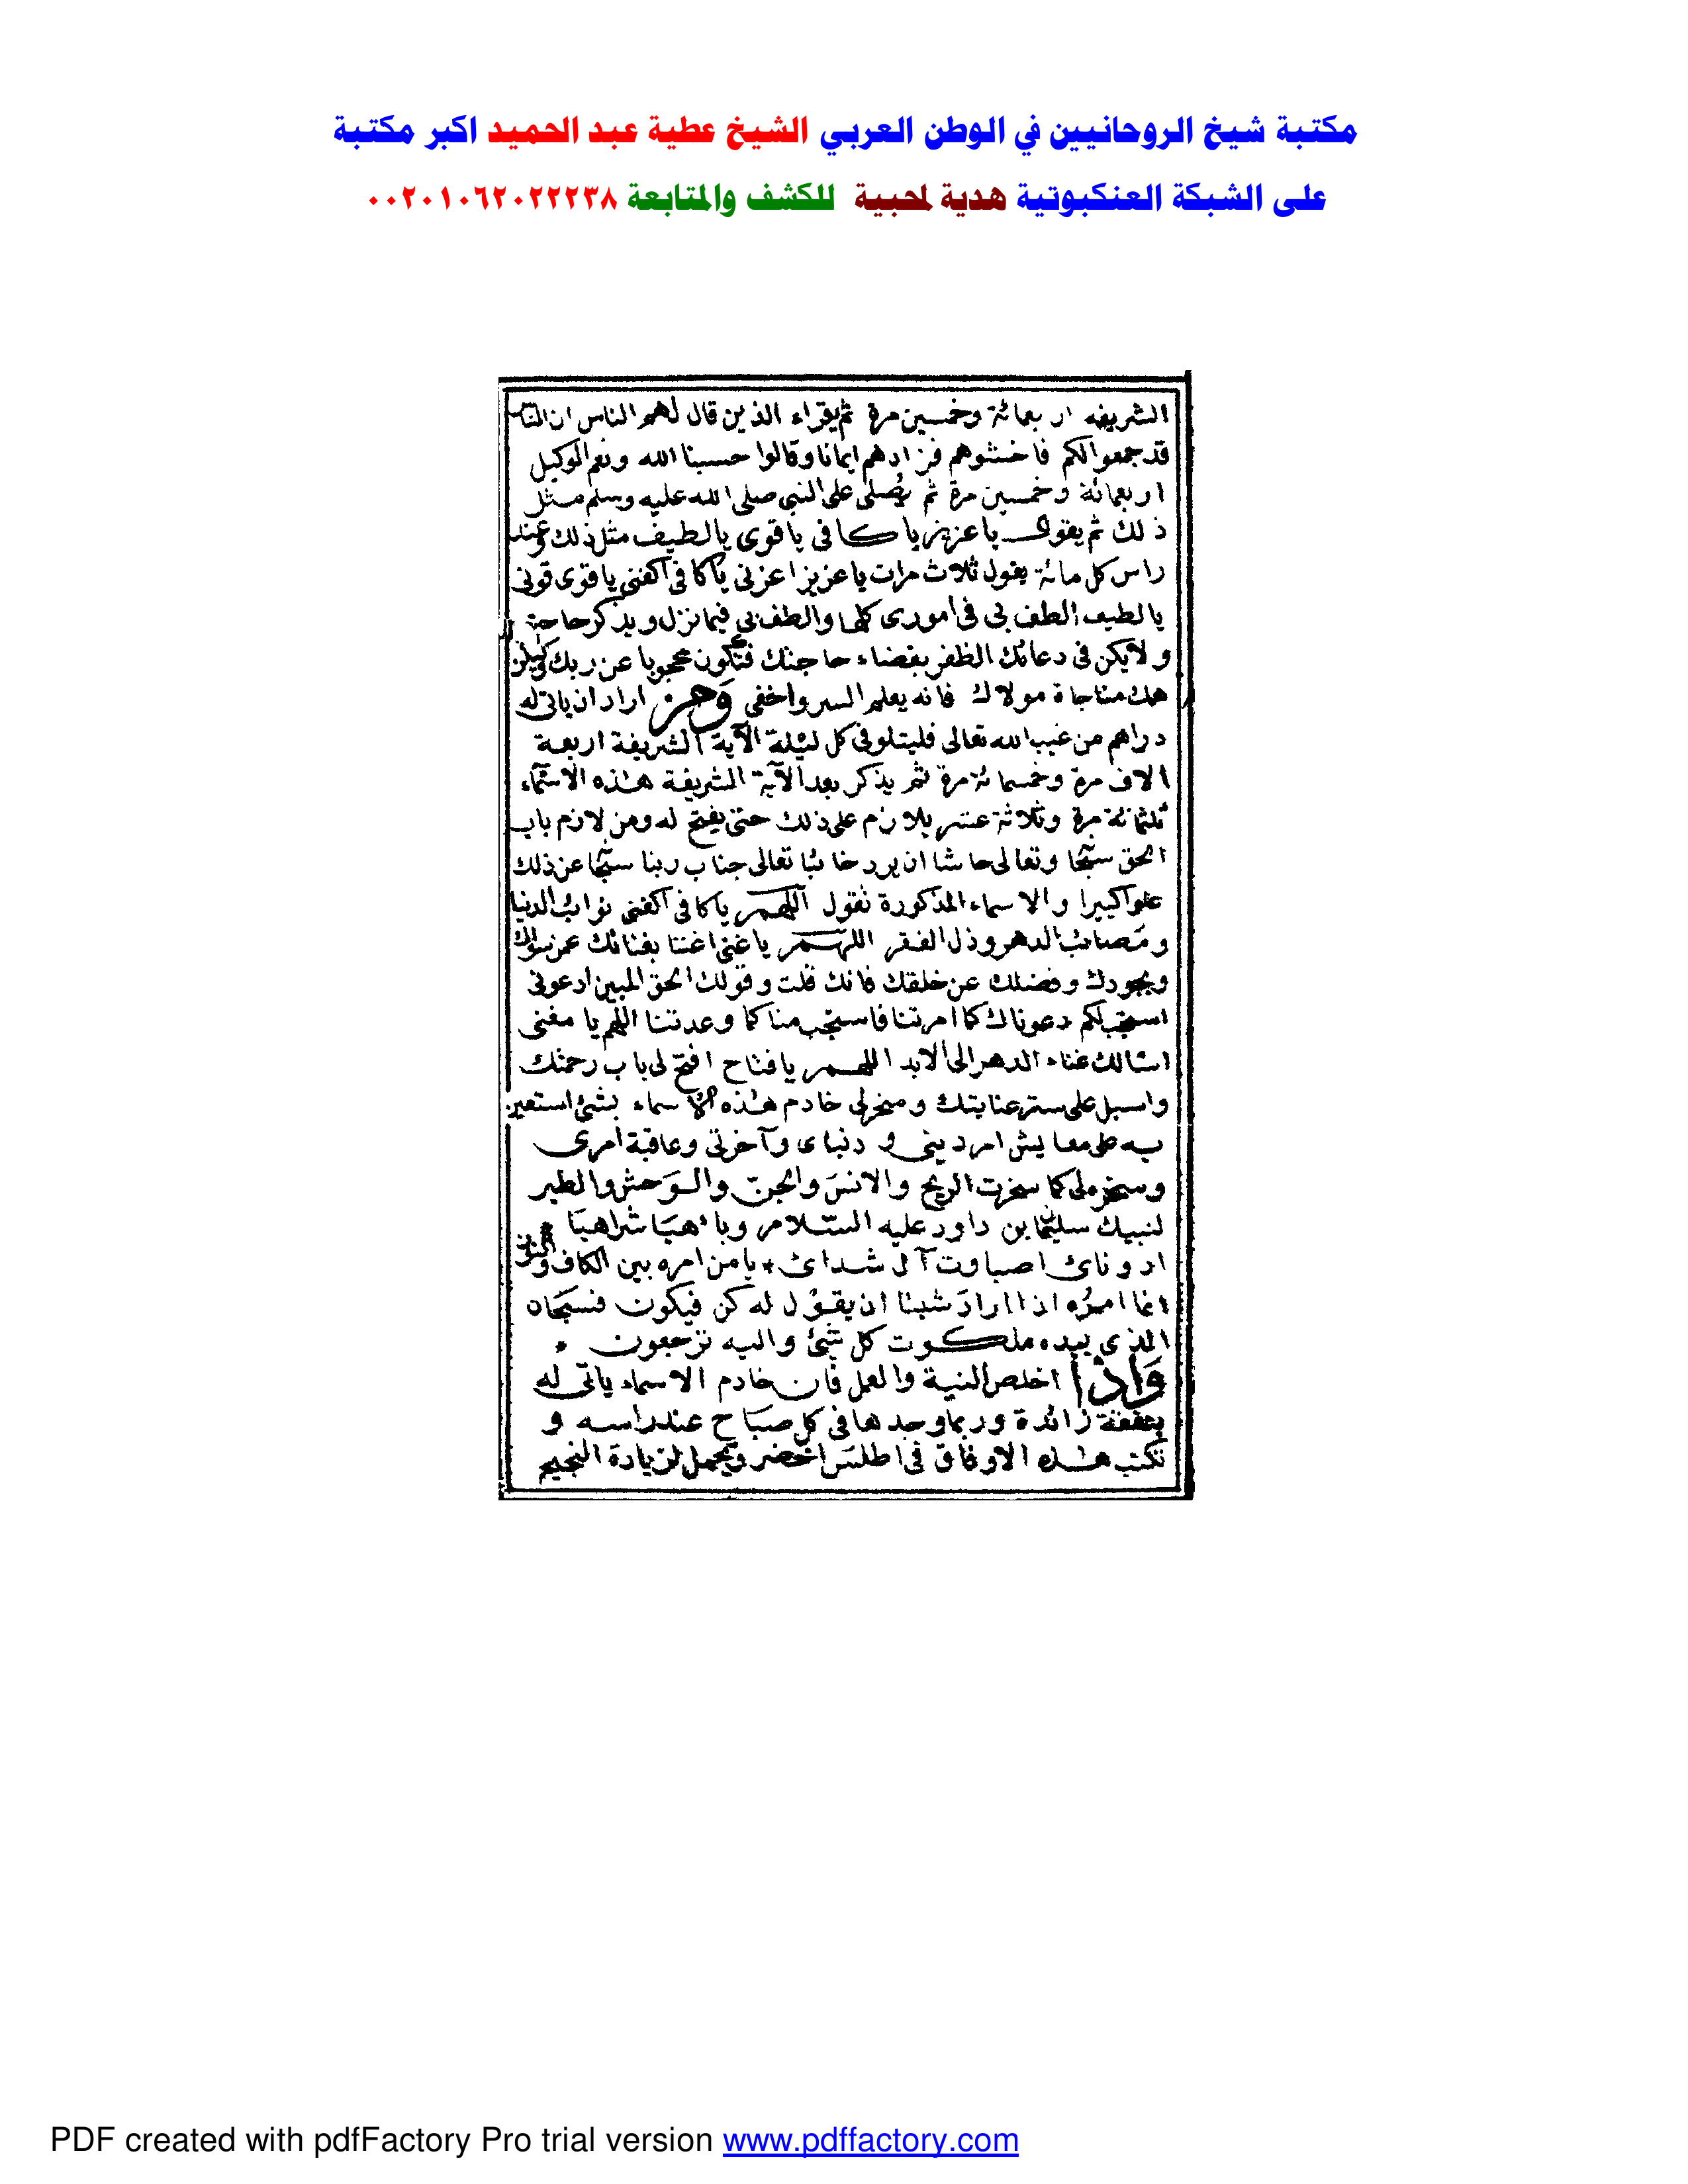 مكتبة شيخ الروحانيين في الوطن العربي الشيخ عطية عبد الحميد اكبر مكتبة
على الشبكة العنكبوتية هدية لمحبية للكشف والمتابعة ٠٠٢٠١٠٦٢٠٢٢٢٣٨
الشريفه اربعمائة وخمسين مرة ثم يقراء الذين قال لهم الناس ان الناس
قد جمعوا لكم فاخشوهم فزادهم ايمانا وقالوا حسبنا الله ونعم الوكيل
اربعمائة وخمسين مرة ثم يُصلى على النبي صلى الله عليه وسلم مثل
ذلك ثم يقول يا عزيز يا كافى يا قوى يا لطيف مثل ذلك وعند
راس كل مائة يقول ثلاث مرات يا عزيز اعزنى يا كافى اكفنى يا قوى قونى
يا لطيف الطف بى فى امورى كلها والطف بى فيما نزل ويذكر حاجته
ولا يكن فى دعائك الظفر بقضاء حاجتك فتكون محجوبا عن ربك وليكن
همك مناجاة مولاك فانه يعلم السر واخفى ومن اراد ان ياتى له
دراهم من غيب الله تعالى فليتلو فى كل ليلة الآية الشريفة اربعة
الاف مرة وخمسمائة مرة ثم يذكر بعد الآية الشريفة هذه الاسماء
ثلثمائة مرة وثلاثة عشر يلازم على ذلك حتى يفتح له ومن لازم باب
الحق سبحا وتعالى حاشا ان يرد خائبا تعالى جناب ربنا سبحا عن ذلك
علوا كبيرا والاسماء المذكورة تقول اللهم يا كافى اكفنى نوائب الدنيا
ومصائب الدهر وذل الفقر اللهم يا غنى اغننا بغنائك عمن سواك
وبجودك وفضلك عن خلقك فانك قلت وقولك الحق المبين ادعونى
استجب لكم دعوناك كما امرتنا فاستجب منا كما وعدتنا اللهم يا مغنى
اسالك غناء الدهر الى الابد اللهم يا فتاح افتح لى باب رحمتك
واسبل على ستر عنايتك وسخر لى خادم هذه الاسماء بشئ استعين
به على معايش امر دينى و دنياى وآخرتى وعاقبة امرى
وسخره لى كما سخرت الريح والانس والجن والوحش والطير
لنبيك سليمان بن داود عليه السلام وباهيا شراهيا
ادوناى اصباوت آل شداى يا من امره بين الكاف والنون
انما امره اذا اراد شيئا ان يقول له كن فيكون فسبحان
الذى بيده ملكوت كل شئ واليه ترجعون
وَاذا اخلص النية والعمل فان خادم الاسماء ياتى له
بنفقة زائدة وربما وجدها فى كل صباح عند راسه و
تكتب هذه الاوفاق فى اطلس اخضر وتحمل لزيادة
PDF created with pdfFactory Pro trial version www.pdffactory.com